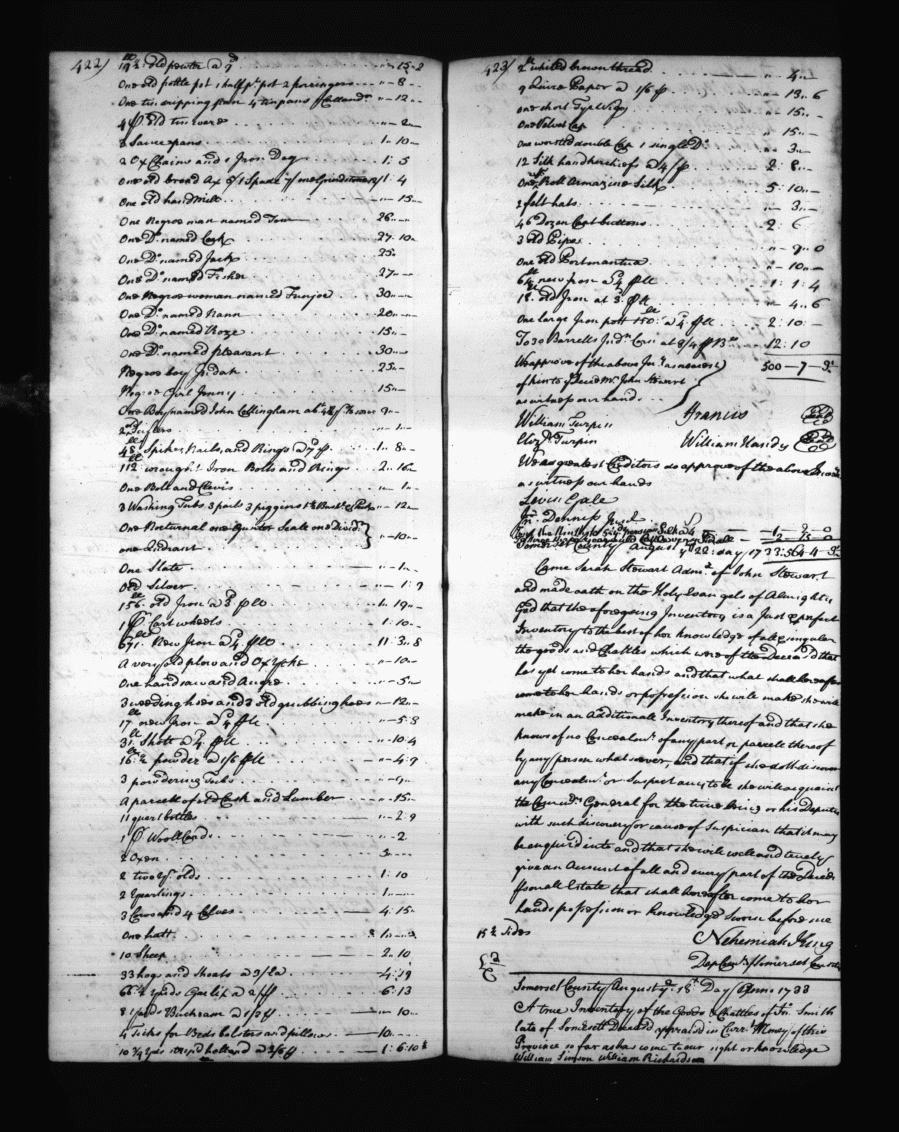 422/
19 ½ old pewter a 9d .. 15 - 2
One old pottle pot 1 half pt pot 2 porringers .. 8 -
One tin dripping pan 4 tin pans .. 12 -
4 old tin ware .. 2 -
8 Saucepans 1 .. 10 -
2 Ox Chains and 1 Iron Dog 1 : 5
One old broad Ax 1 Spade one Grindstone 1 : 4
One old hand Mill .. 15 -
One Negroe man named Tom 26 .. -
One Do named Cook 27 . 10 -
One Do named Jack 25
One Do named Fisher 27 - -
One Negroe woman named Funjoe 30 - -
One Do named Nann 20 - -
One Do named Roze 15 -
One Do named pleasant 30 - -
Negroe boy Judah 25 -
Negroe Girl Jenny 15 -
One Boy named John Collingham abt 9 -
2 .. 1 -
48 Spikes Nails and Rings a 7d 1 .. 8 -
112 wrought Iron Bolts and Rings 2 . 16 -
One Bolt and Clevis .. 1 -
3 Washing Tubs 3 pails 3 piggins .. 12 -
One Nocturnal one Gunter Scale one
one Quadrant .. 10 -
One Slate .. 1 -
Old Silver - 1 : 9
156 old Iron a 3d 1 .. 19 -
1 pr Cart wheels 1 . 10 -
671 New Iron a 4d 11 . 3 .. 8
A very old plow and Ox Yoke .. 10 -
One handsaw and Augre .. 5 -
3 weeding hoes and 2 old grubbing hoes .. 12 -
17 new Iron a 4 .. 5 : 8
31 Shott a 4 .. 10 4
16 ½ powder a .. 4 : 9
3 powdering Tubs .. 9 -
A parcell of old Cask and Lumber .. 15 -
11 quart bottles .. 2 . 9
1 pr Wooll Cards .. 2
2 Oxen 3 - -
2 two yr olds 1 : 10
2 Yearlings 1 - -
3 Cows and 4 Calves 4 . 15
One hatt
10 Sheep 2 . 10
33 hogs and Shoats a 4 . 19
66 ½ yards Garlip a 2/ 6 : 13
8 Yards Buckram a 1/3 10 -
4 Ticks for Beds bolsters and pillows 10 -
10 ¼ yds stripd holland a 2/6 1 : 6 : 10 ½
423/
2 whited brown thread .. 4 -
9 Quire Paper a 1/6 .. 13 .. 6
one short Tye Wigg .. 15 -
One Velvet Cap .. 15 -
One worsted double Cap 1 single Do .. 3 -
12 Silk handkerchief a 4/ 2 : 8 -
One Roll Armazine Silk 5 : 10 -
2 felt hats .. 3 -
46 Dozen Coat buttons 2 : 6
3 old Pipes .. 9 .. 0
One old Portmantua .. 10 -
64 new Iron a 4 1 : 1 : 4
18 old Iron at 3 .. 4 .. 6
One large Iron pott 150 a 4 2 : 10 -
To 30 Barrells Indn Corn at 8/4 12 : 10
We approve of the above as nearest 500 - 7 - 3
of kin to ye Deced Mr John Stewart
as witness our hands
William Turpin Francis
Elizth Turpin William Handy
We as greatest Creditors do approve of the above
as witness our hands
Levin Gale
Jno Dennis Jund
Somerset County August ye 22: day 1733: 564 4
Came Sarah Stewart Admx of John Stewart
and made oath on the Holy Evangels of Almighty
God that the aforegoing Inventory is a Just & perfect
Inventory to the best of her knowledge of all & singular
the goods and Chattles which were of the Deceased that
has yet come to her hands and that what shall hereafter
come to her hands or possession she will make she will
make in an Additionall Inventory thereof and that she
knows of no Concealmt of any part or parcell thereof
by any person whatsoever, and that if she doth discover
any Concealmt or Suspect any to be she will acquaint
the Comissr General for the time being or his Deputies
with such discovery or cause of Suspician that it may
be enquird into and that she will well and truely
give an Account of all and every part of the Deceds
psonall Estate that shall hereafter come to her
hands possession or Knowledge Sworn before me
15 ½ Sides Nehemiah King
Dep Comr Somerset County
Somerset County August ye 18th Day Anno 1733
A true Inventory of the Goods & Chattles of Jno Smith
late of Somersett Deceasd appraisd in Currt Money of this
Province so far as has come to our sight or knowledge
William Simson William Richardson